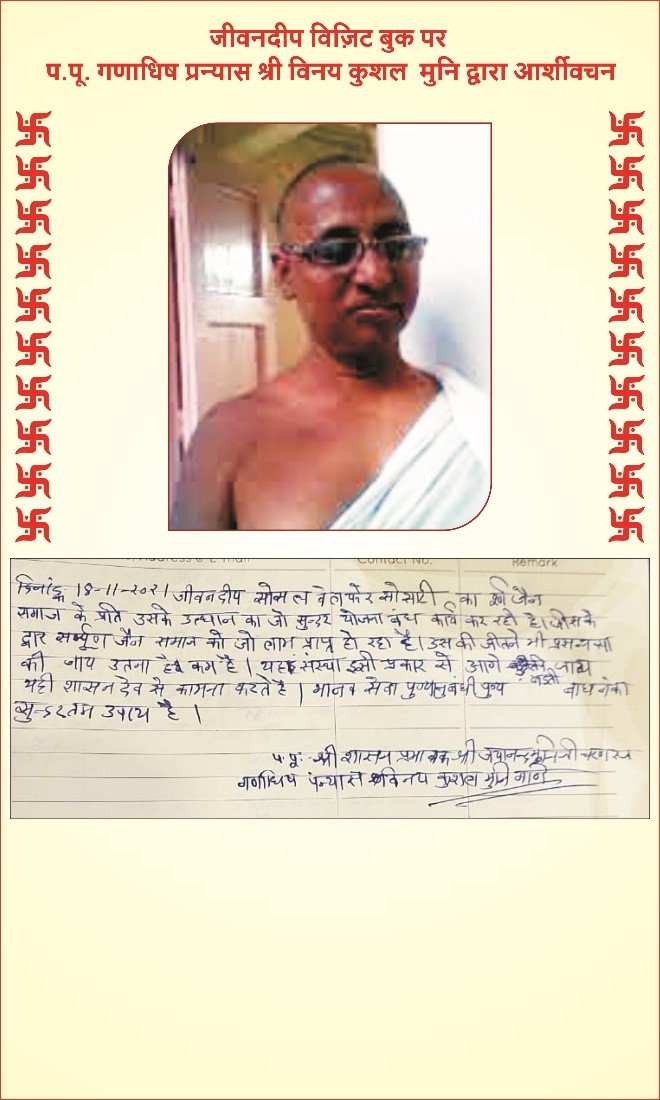 जीवनदीप विज़िट बुक पर
प.पू. गणाधिष प्रन्यास श्री विनय कुशल मुनि द्वारा आर्शीवचन
Contact No. Remark
दिनांक 18-11-2021 जीवनदीप सोसल वेलफेर सोसटी का जैन
समाज के प्रति उसके उत्थान का जो सुन्दर योजना बंध कार्य कर रही है। जिसके
द्वार सम्पूर्ण जैन समाज को जो लाभ प्राप्त हो रहा है। उसकी जीतनी भी प्रसन्यसा
की जाय उतना है कम है। यह संस्था इसी प्रकार से आगे बढती जाय
यही शासन देव से कामना करते है। मानव सेवा पुण्यानुबंधी पुण्य बांधने का
सुन्दरतम उपाय है।
प.पू. श्री शासन प्रभावक श्री जयानन्द मुनि श्री चरणरज
गणाधिष पंन्यास विनय कुशल मुनि गणि